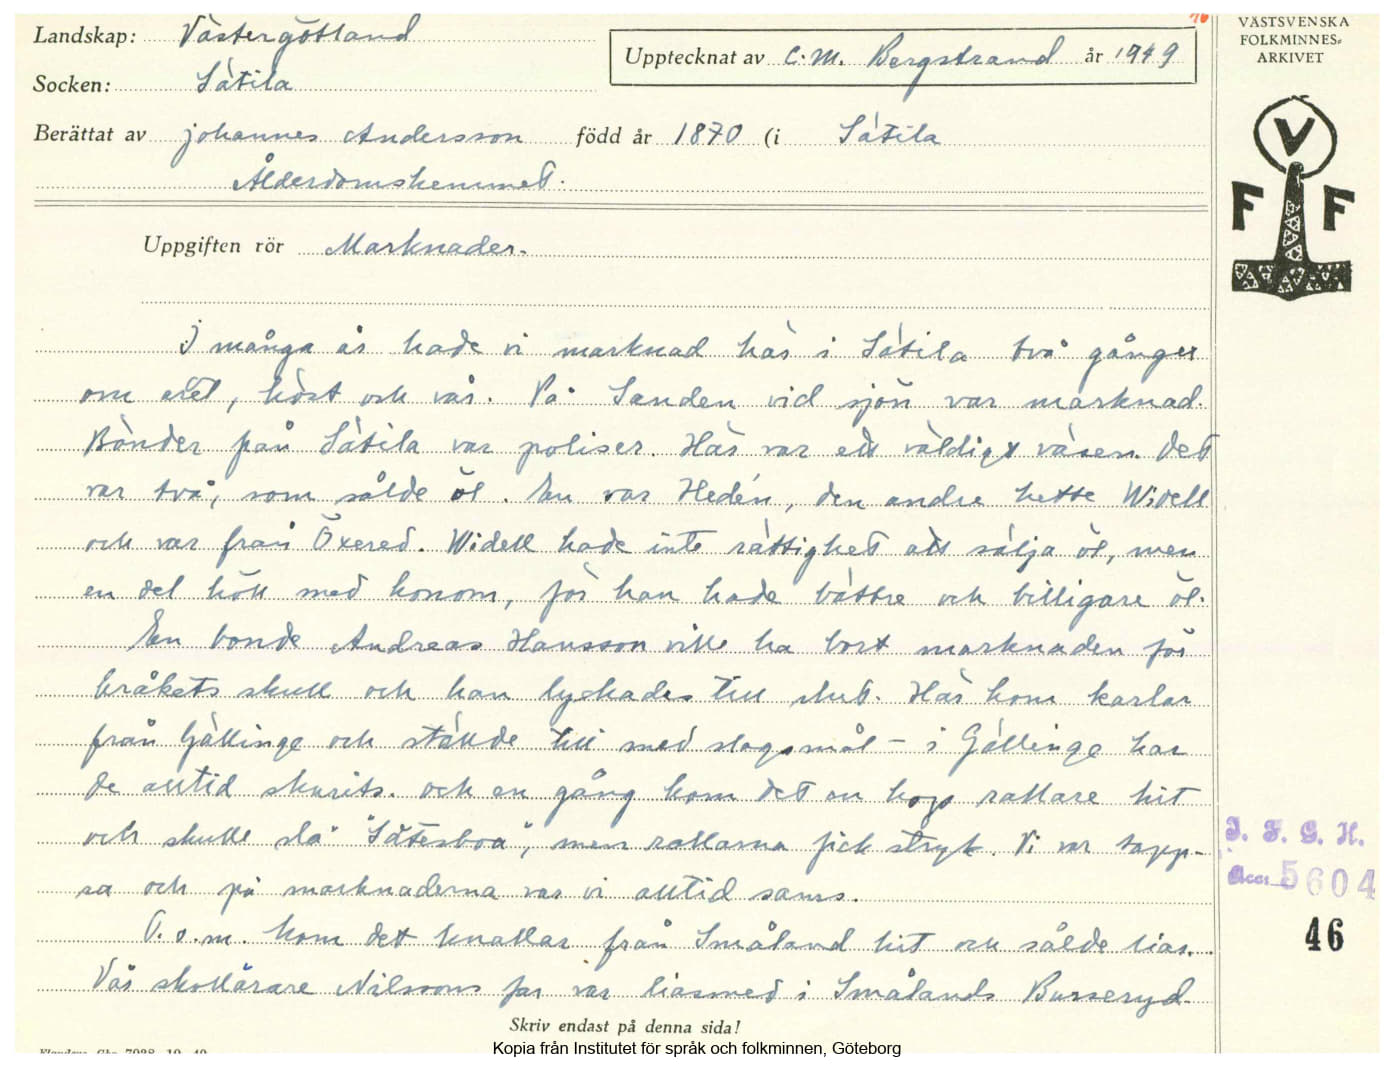 Landskap: Västergötland
Socken: Sätila
Upptecknat av C.M. Bergstrand år 1949
Berättat av Johannes Andersson född år 1870 (i Sätila
Ålderdomshemmet.
Uppgiften rör Marknader.
I många år hade vi marknad här i Sätila två gånger
om året, höst och vår. På Sanden vid sjön var marknad.
Bönder från Sätila var poliser. Här var ett väldigt väsen. Det
var två, som sålde öl. En var Hedén, den andre hette Widell
och var från Öxered. Widell hade inte rättighet att sälja öl, men
en del höll med honom, för han hade bättre och billigare öl.
En bonde Andreas Hansson ville ha bort marknaden för
bråkets skull och han lyckades till slut. Här kom karlar
från Gällinge och ställde till med slagsmål – i Gällinge har
de alltid skurits. Och en gång kom det en hop rallare hit
och skulle slå "Säteboa", men rallarna fick stryk. Vi var tapp-
ra och på marknaderna var vi alltid sams.
T.o.m. kom det knallar från Småland hit och sålde liar.
Vår skollärare Nilssons far var liasmed i Smålands Burseryd
Skriv endast på denna sida!
VÄSTSVENSKA
FOLKMINNES-
ARKIVET
V
F F
I. F. G. H.
Acc. 5604
46
Kopia från Institutet för språk och folkminnen, Göteborg